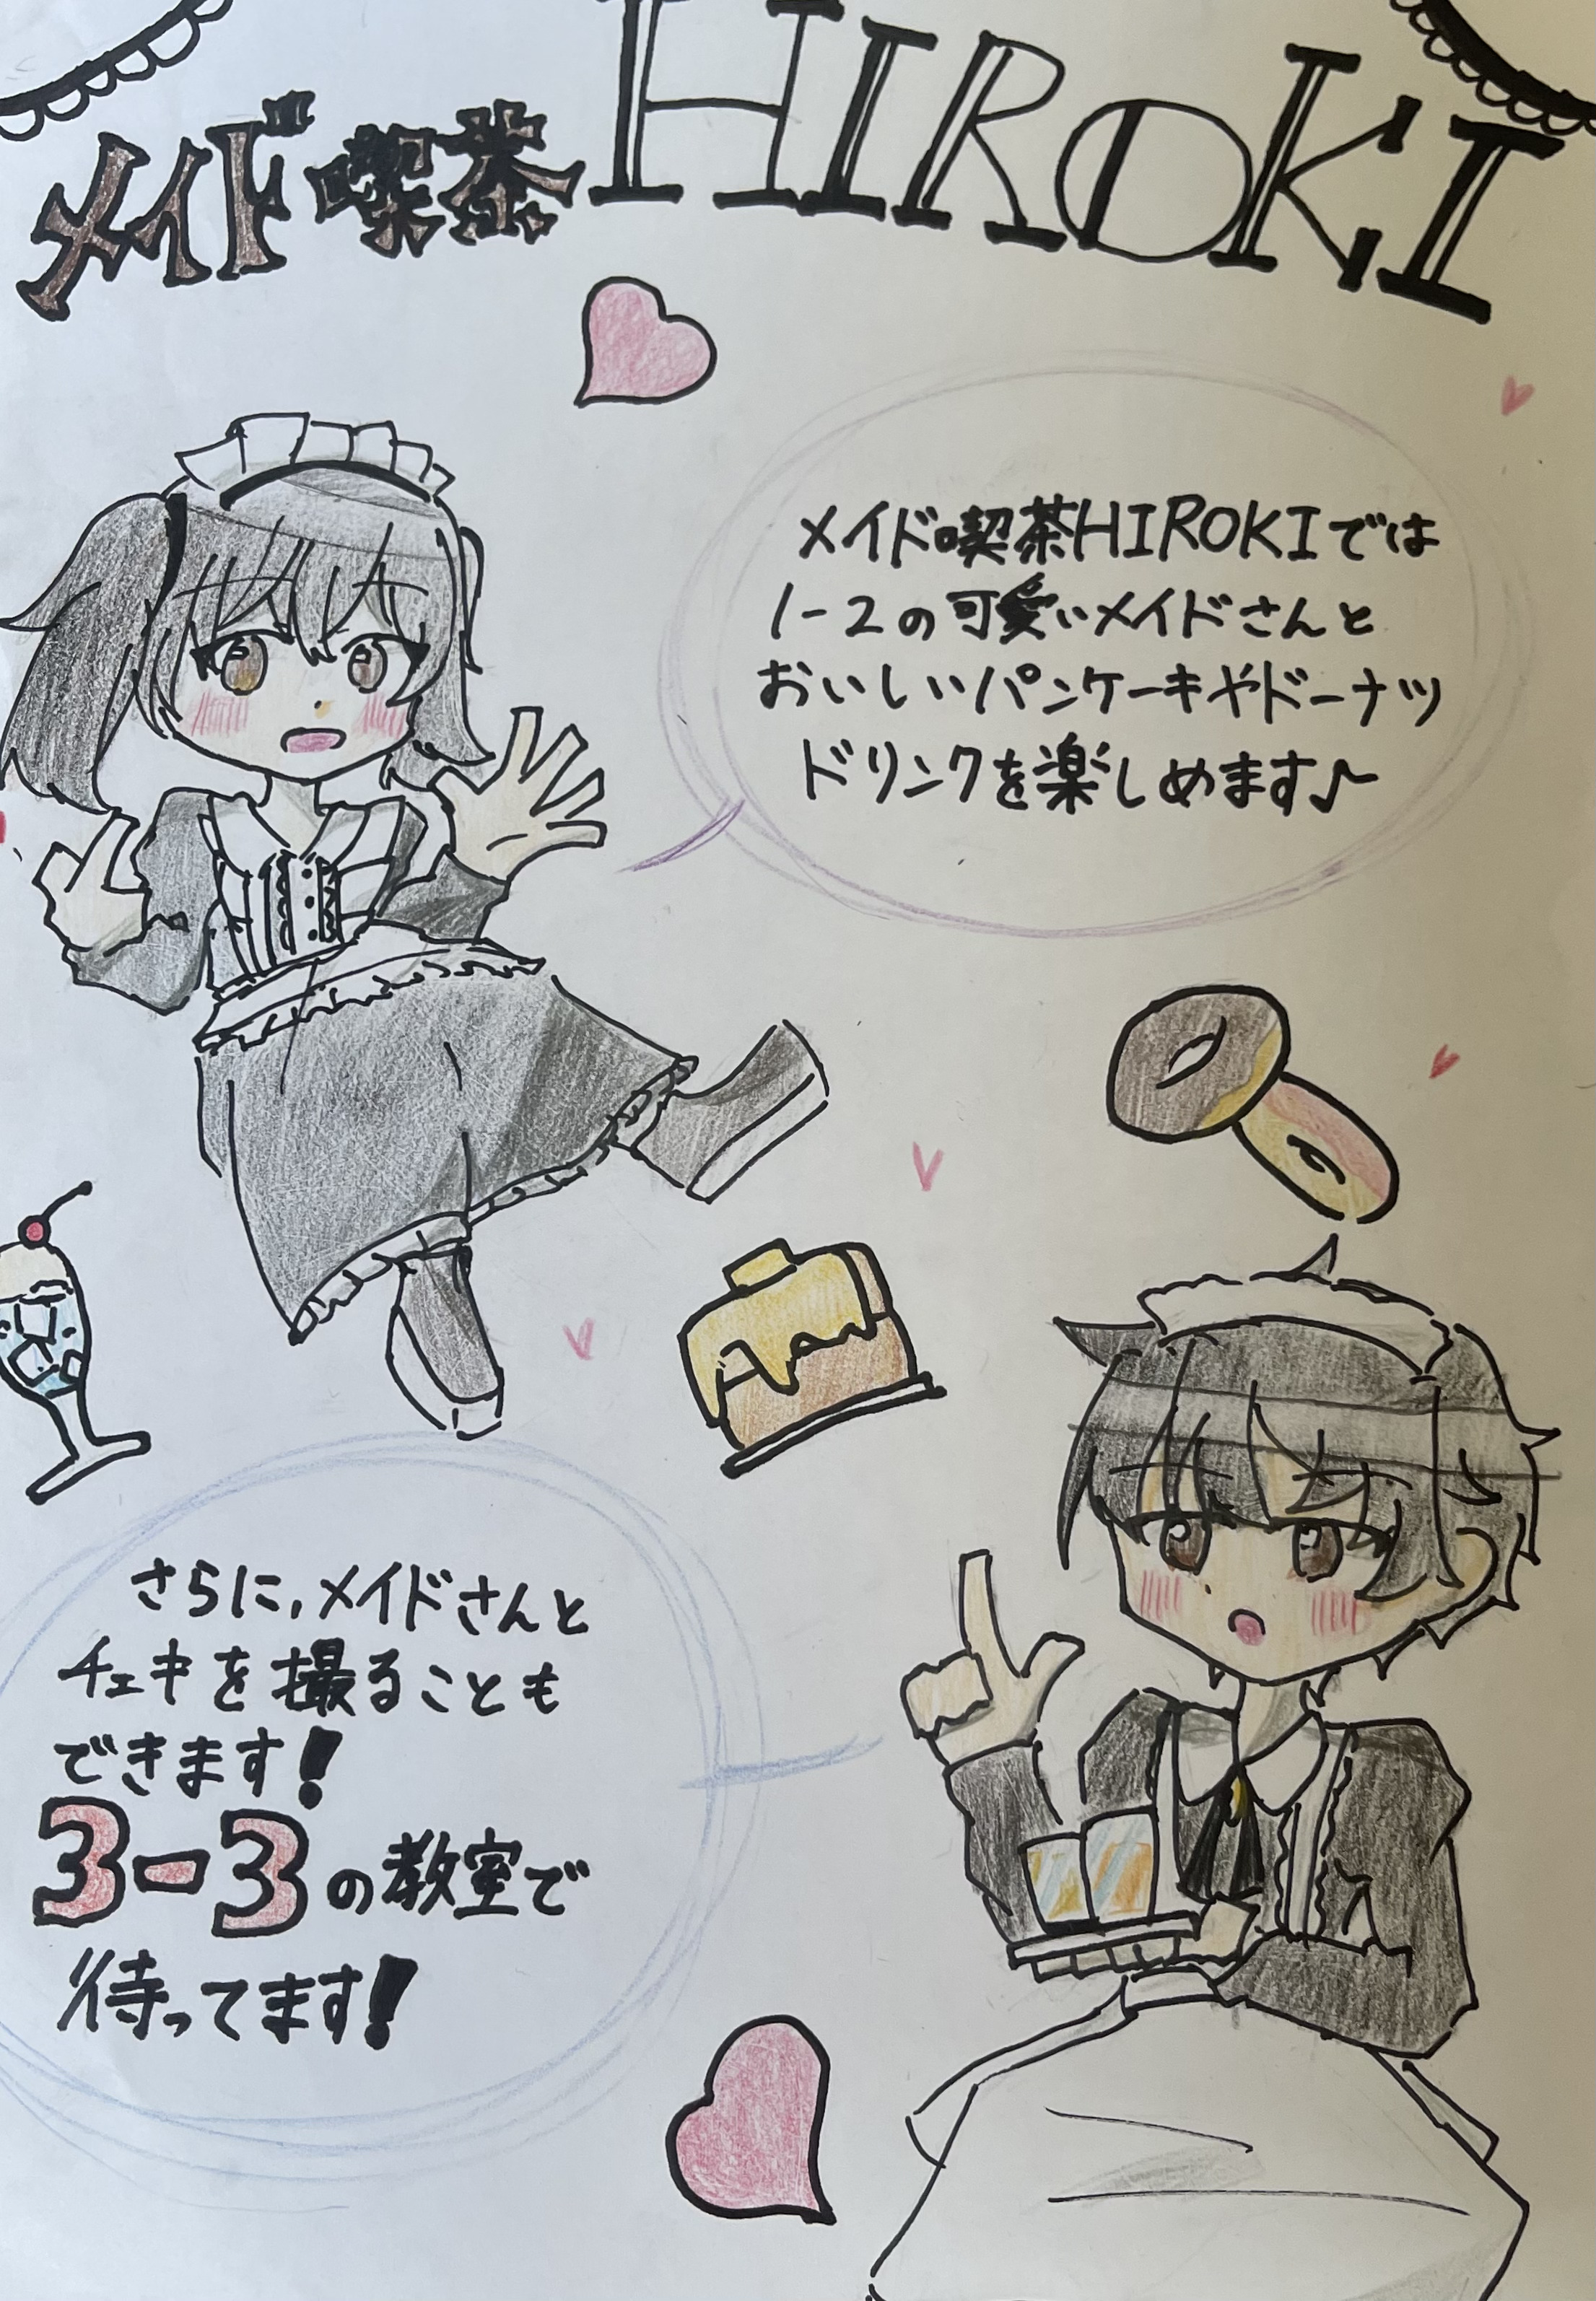 メイド喫茶HIROKI
メイド喫茶HIROKIでは
1-2の可愛いメイドさんと
おいしいパンケーキやドーナツ
ドリンクを楽しめます♪
さらに、メイドさんと
チェキを撮ることも
できます!
3-3の教室で
待ってます!